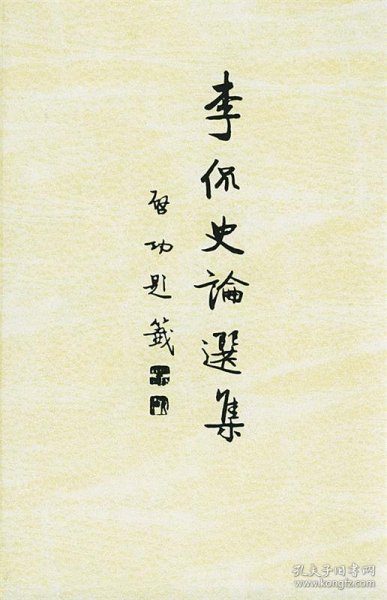 李侃史論選集
啓功題籤
孔夫子旧书网
www.kongfz.com